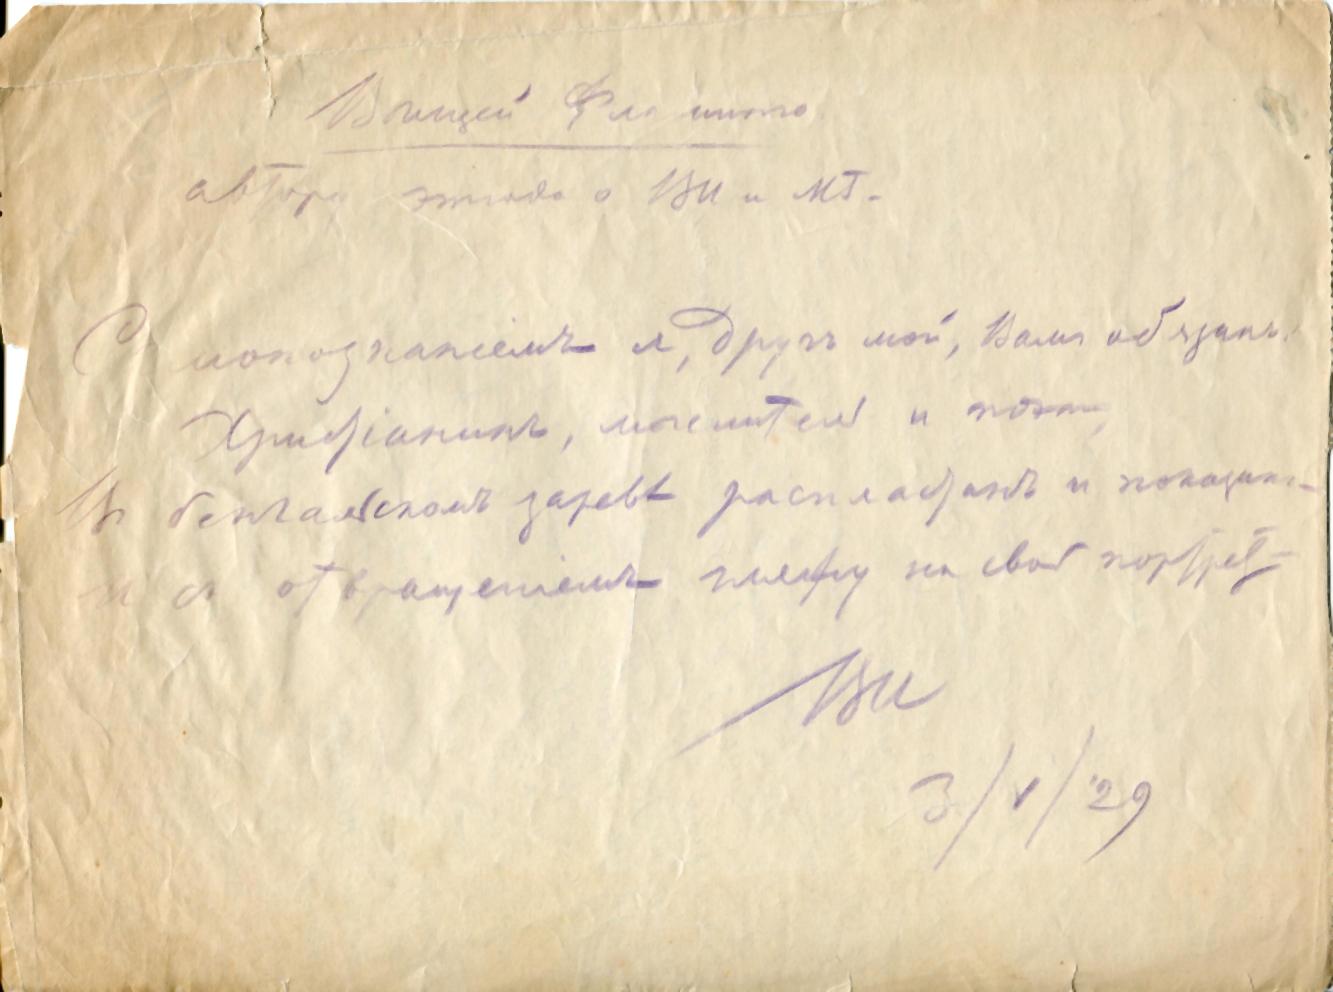 автору этюда о ВИ и МТ.
Самопознаніемъ я, Другъ мой, Вамъ обязанъ.
Христіанинъ, мыслитель и поэтъ,
В бенгальскомъ заревѣ распластанъ и показанъ
и съ отвращеніемъ гляжу на свой портретъ
ВИ
3/V/29